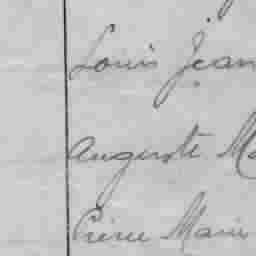 Louis Jean
Auguste Ma
Pierre Marie